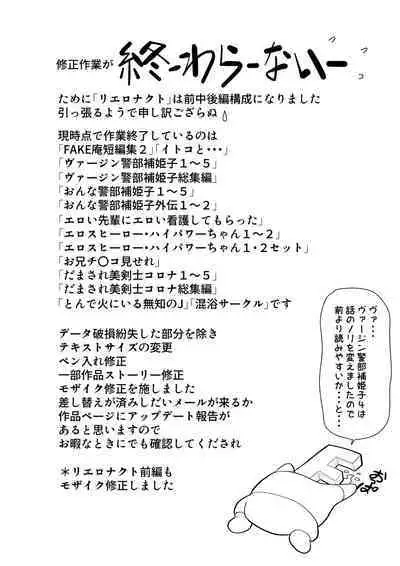 修正作業が
終ーわらーないー
ために「リエロナクト」は前中後編構成になりました
引っ張るようで申し訳ござらぬ
現時点で作業終了しているのは
「FAKE庵短編集2」「イトコと・・・」
「ヴァージン警部補姫子1~5」
「ヴァージン警部補姫子総集編」
「おんな警部補姫子1~5」
「おんな警部補姫子外伝1~2」
「エロい先輩にエロい看護してもらった」
「エロスヒーロー・ハイパワーちゃん1~2」
「エロスヒーロー・ハイパワーちゃん1・2セット」
「お兄チ〇コ見せれ」
「だまされ美剣士コロナ1~5」
「だまされ美剣士コロナ総集編」
「とんで火にいる無知のJ」「混浴サークル」です
データ破損紛失した部分を除き
テキストサイズの変更
ペン入れ修正
一部作品ストーリー修正
モザイク修正を施しました
差し替えが済みしだいメールが来るか
作品ページにアップデート報告が
あると思いますので
お暇なときにでも確認してくだされ
*リエロナクト前編も
モザイク修正しました
ヴァ・・・
ヴァージン警部補姫子4は
話のノリを変えましたので
前より読みやすいか・・と・・